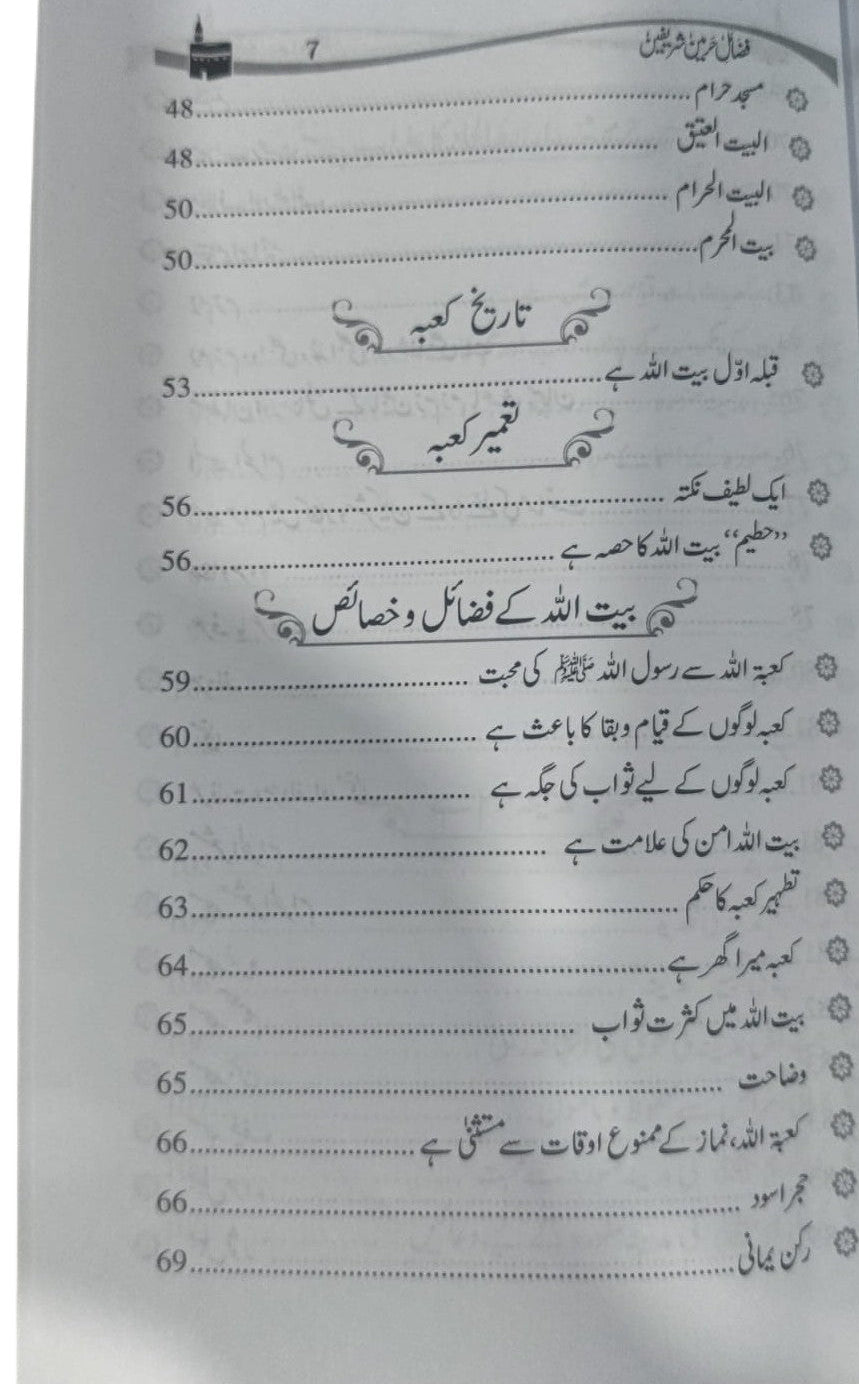 فضائل حرمین شریفین 7
مسجد حرام ........ 48
البیت العتیق ........ 48
البیت الحرام ........ 50
بیت المحرم ........ 50
تاریخ کعبہ
قبلہ اوّل بیت اللہ ہے ........ 53
تعمیر کعبہ
ایک لطیف نکتہ ........ 56
”حطیم“ بیت اللہ کا حصہ ہے ........ 56
بیت اللہ کے فضائل و خصائص
کعبۃ اللہ سے رسول اللہ ﷺ کی محبت ........ 59
کعبہ لوگوں کے قیام و بقا کا باعث ہے ........ 60
کعبہ لوگوں کے لیے ثواب کی جگہ ہے ........ 61
بیت اللہ امن کی علامت ہے ........ 62
تطہیر کعبہ کا حکم ........ 63
کعبہ میرا گھر ہے ........ 64
بیت اللہ میں کثرت ثواب ........ 65
وضاحت ........ 65
کعبۃ اللہ، نماز کے ممنوع اوقات سے مستثنیٰ ہے ........ 66
حجر اسود ........ 66
رکن یمانی ........ 69